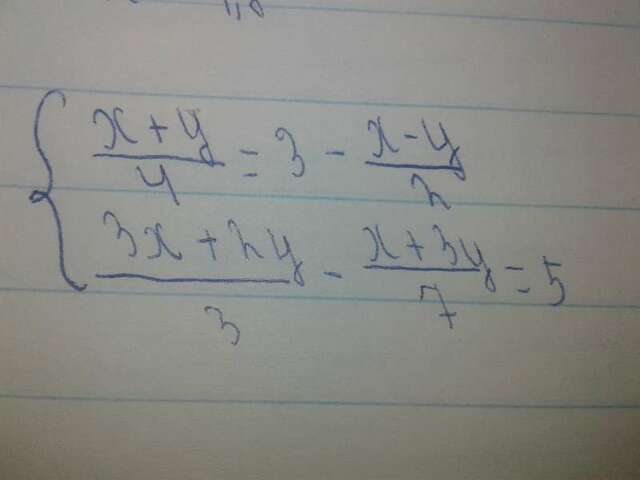 x + y / 4 = 3 - x - y / 2
3x + 2y / 3 - x + 3y / 7 = 5